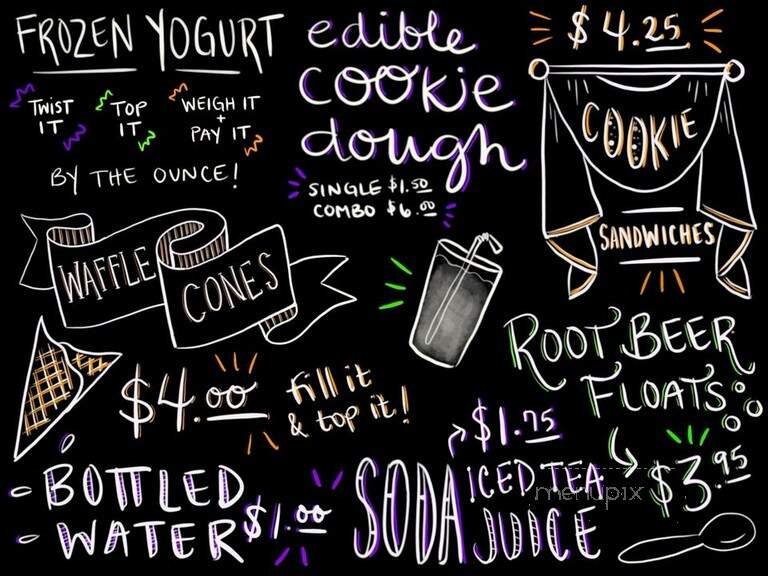 FROZEN YOGURT
TWIST
IT
TOP
IT
WEIGH IT
+
PAY IT
BY THE OUNCE!
edible
cookie
dough
SINGLE $1.50
COMBO $6.00
$4.25
COOKIE
SANDWICHES
WAFFLE
CONES
$4.00
fill it
& top it!
ROOT BEER
FLOATS
$3.95
BOTTLED
WATER
$1.00
$1.75
SODA
ICED TEA
JUICE
menupix